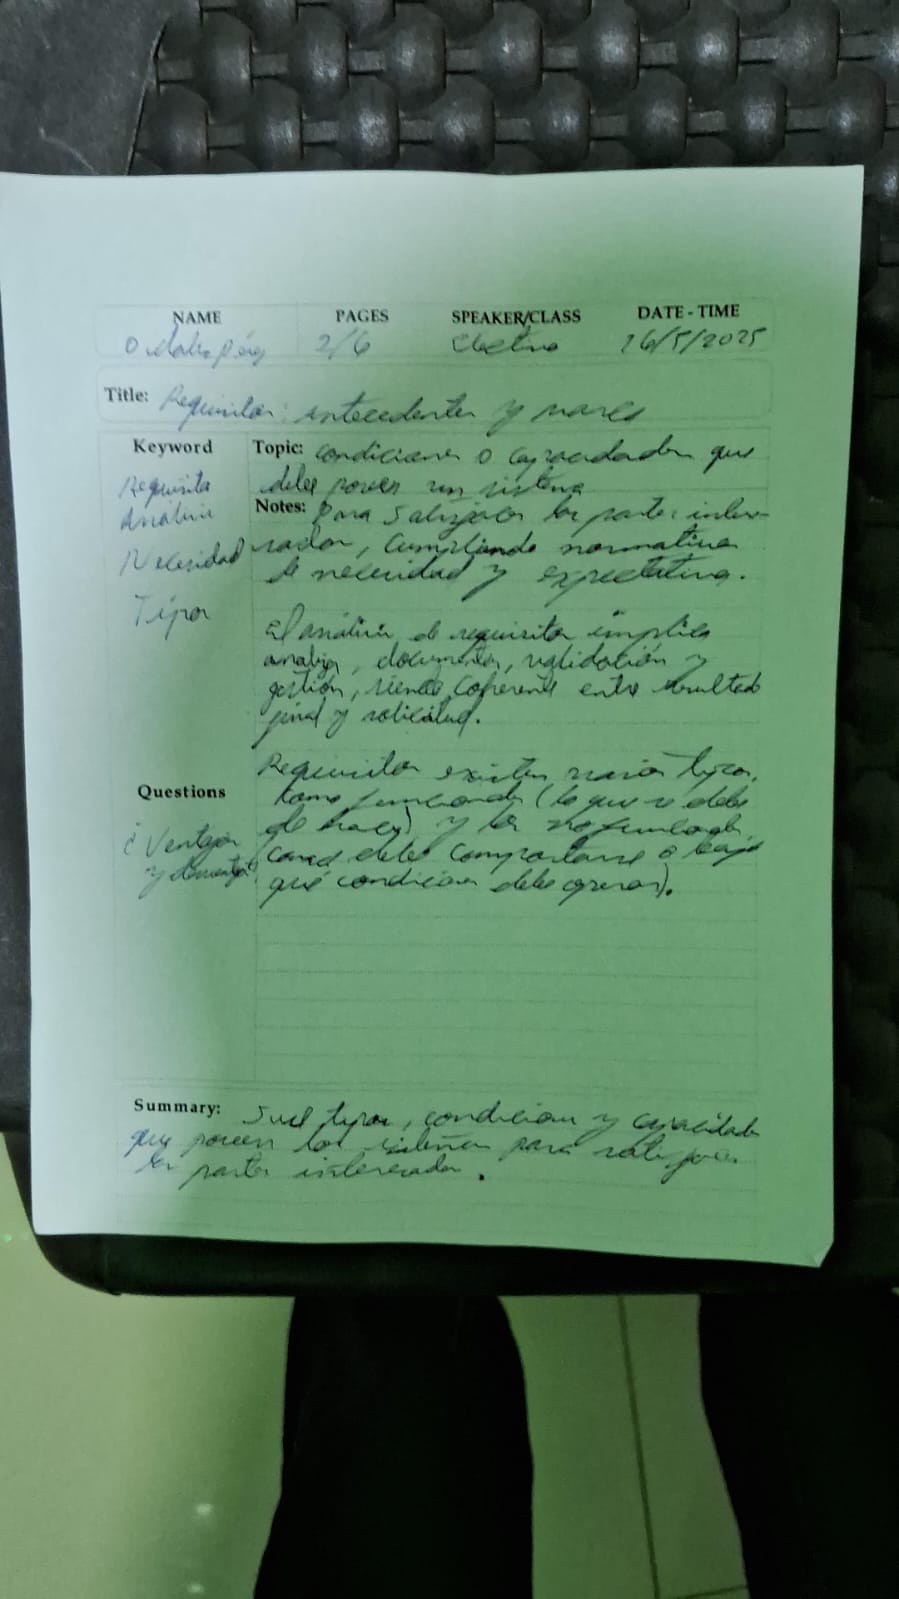 NAME PAGES SPEAKER/CLASS DATE - TIME
2/6 Electiva 26/5/2025
Title: Requisitos: antecedentes y
Keyword
Requisito
Análisis
Necesidad
Tipos
Topic: condiciones o capacidades que
debe poseer un sistema
Notes: para satisfacer las partes intere-
sadas, cumpliendo normativas
de necesidad y expectativa.
El análisis de requisitos implica
documentar, validación y
gestión, siendo coherente entre resultado
final y solicitud.
Requisitos existen varios tipos,
como funcionales (lo que se debe
de hacer) y los no funcionales
debe comportarse o bajo
qué condiciones debe operar).
Questions
¿Ventajas
y desventajas?
Summary: tipos, condiciones y capacidades
que poseen los sistemas para satisfacer
las partes interesadas.